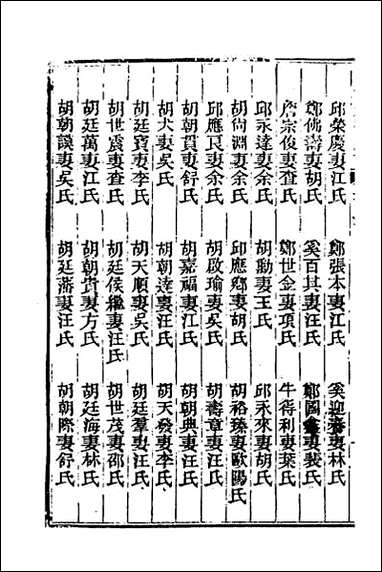 邱榮慶妻江氏 鄭張本妻江氏 奚迎 妻林氏
鄭佛壽妻胡氏 奚百其妻汪氏 鄭國 妻裴氏
詹宗俊妻查氏 鄭世金妻項氏 牛得利妻葉氏
邱永達妻余氏 胡勛妻王氏 邱永來妻胡氏
胡尙淵妻余氏 邱應鄉妻胡氏 胡裕臻妻歐陽氏
邱應良妻余氏 胡啟瑜妻吳氏 胡壽章妻汪氏
胡朝貫妻舒氏 胡嘉福妻江氏 胡朝典妻汪氏
胡犬妻吳氏 胡朝達妻汪氏 胡天發妻李氏
胡廷寶妻李氏 胡天順妻吳氏 胡廷羣妻汪氏
胡世震妻查氏 胡廷侯繼妻汪氏 胡世茂妻邵氏
胡廷萬妻江氏 胡朝貴妻方氏 胡廷海妻林氏
胡朝謨妻吳氏 胡廷藩妻汪氏 胡朝際妻舒氏